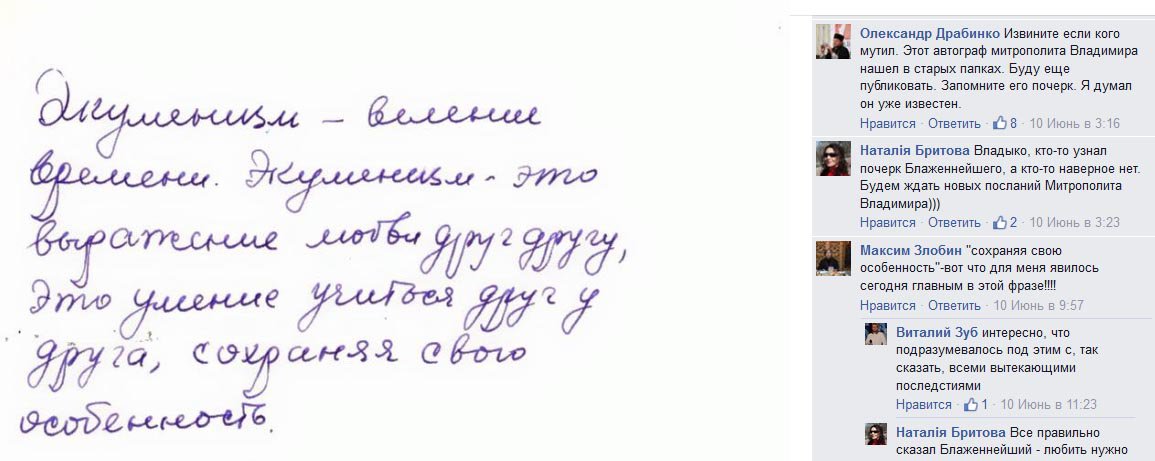 Экуменизм – веление
времени. Экуменизм - это
выражение любви друг другу,
это умение учиться друг у
друга, сохраняя свою
особенность.
Олександр Драбинко Извините если кого
мутил. Этот автограф митрополита Владимира
нашел в старых папках. Буду еще
публиковать. Запомните его почерк. Я думал
он уже известен.
Нравится · Ответить · 8 · 10 Июнь в 3:16
Наталія Бритова Владыко, кто-то узнал
почерк Блаженнейшего, а кто-то наверное нет.
Будем ждать новых посланий Митрополита
Владимира)))
Нравится · Ответить · 2 · 10 Июнь в 3:23
Максим Злобин "сохраняя свою
особенность"-вот что для меня явилось
сегодня главным в этой фразе!!!!
Нравится · Ответить · 10 Июнь в 9:57
Виталий Зуб интересно, что
подразумевалось под этим с, так
сказать, всеми вытекающими
последстиями
Нравится · 1 · 10 Июнь в 11:23
Наталія Бритова Все правильно
сказал Блаженнейший - любить нужно